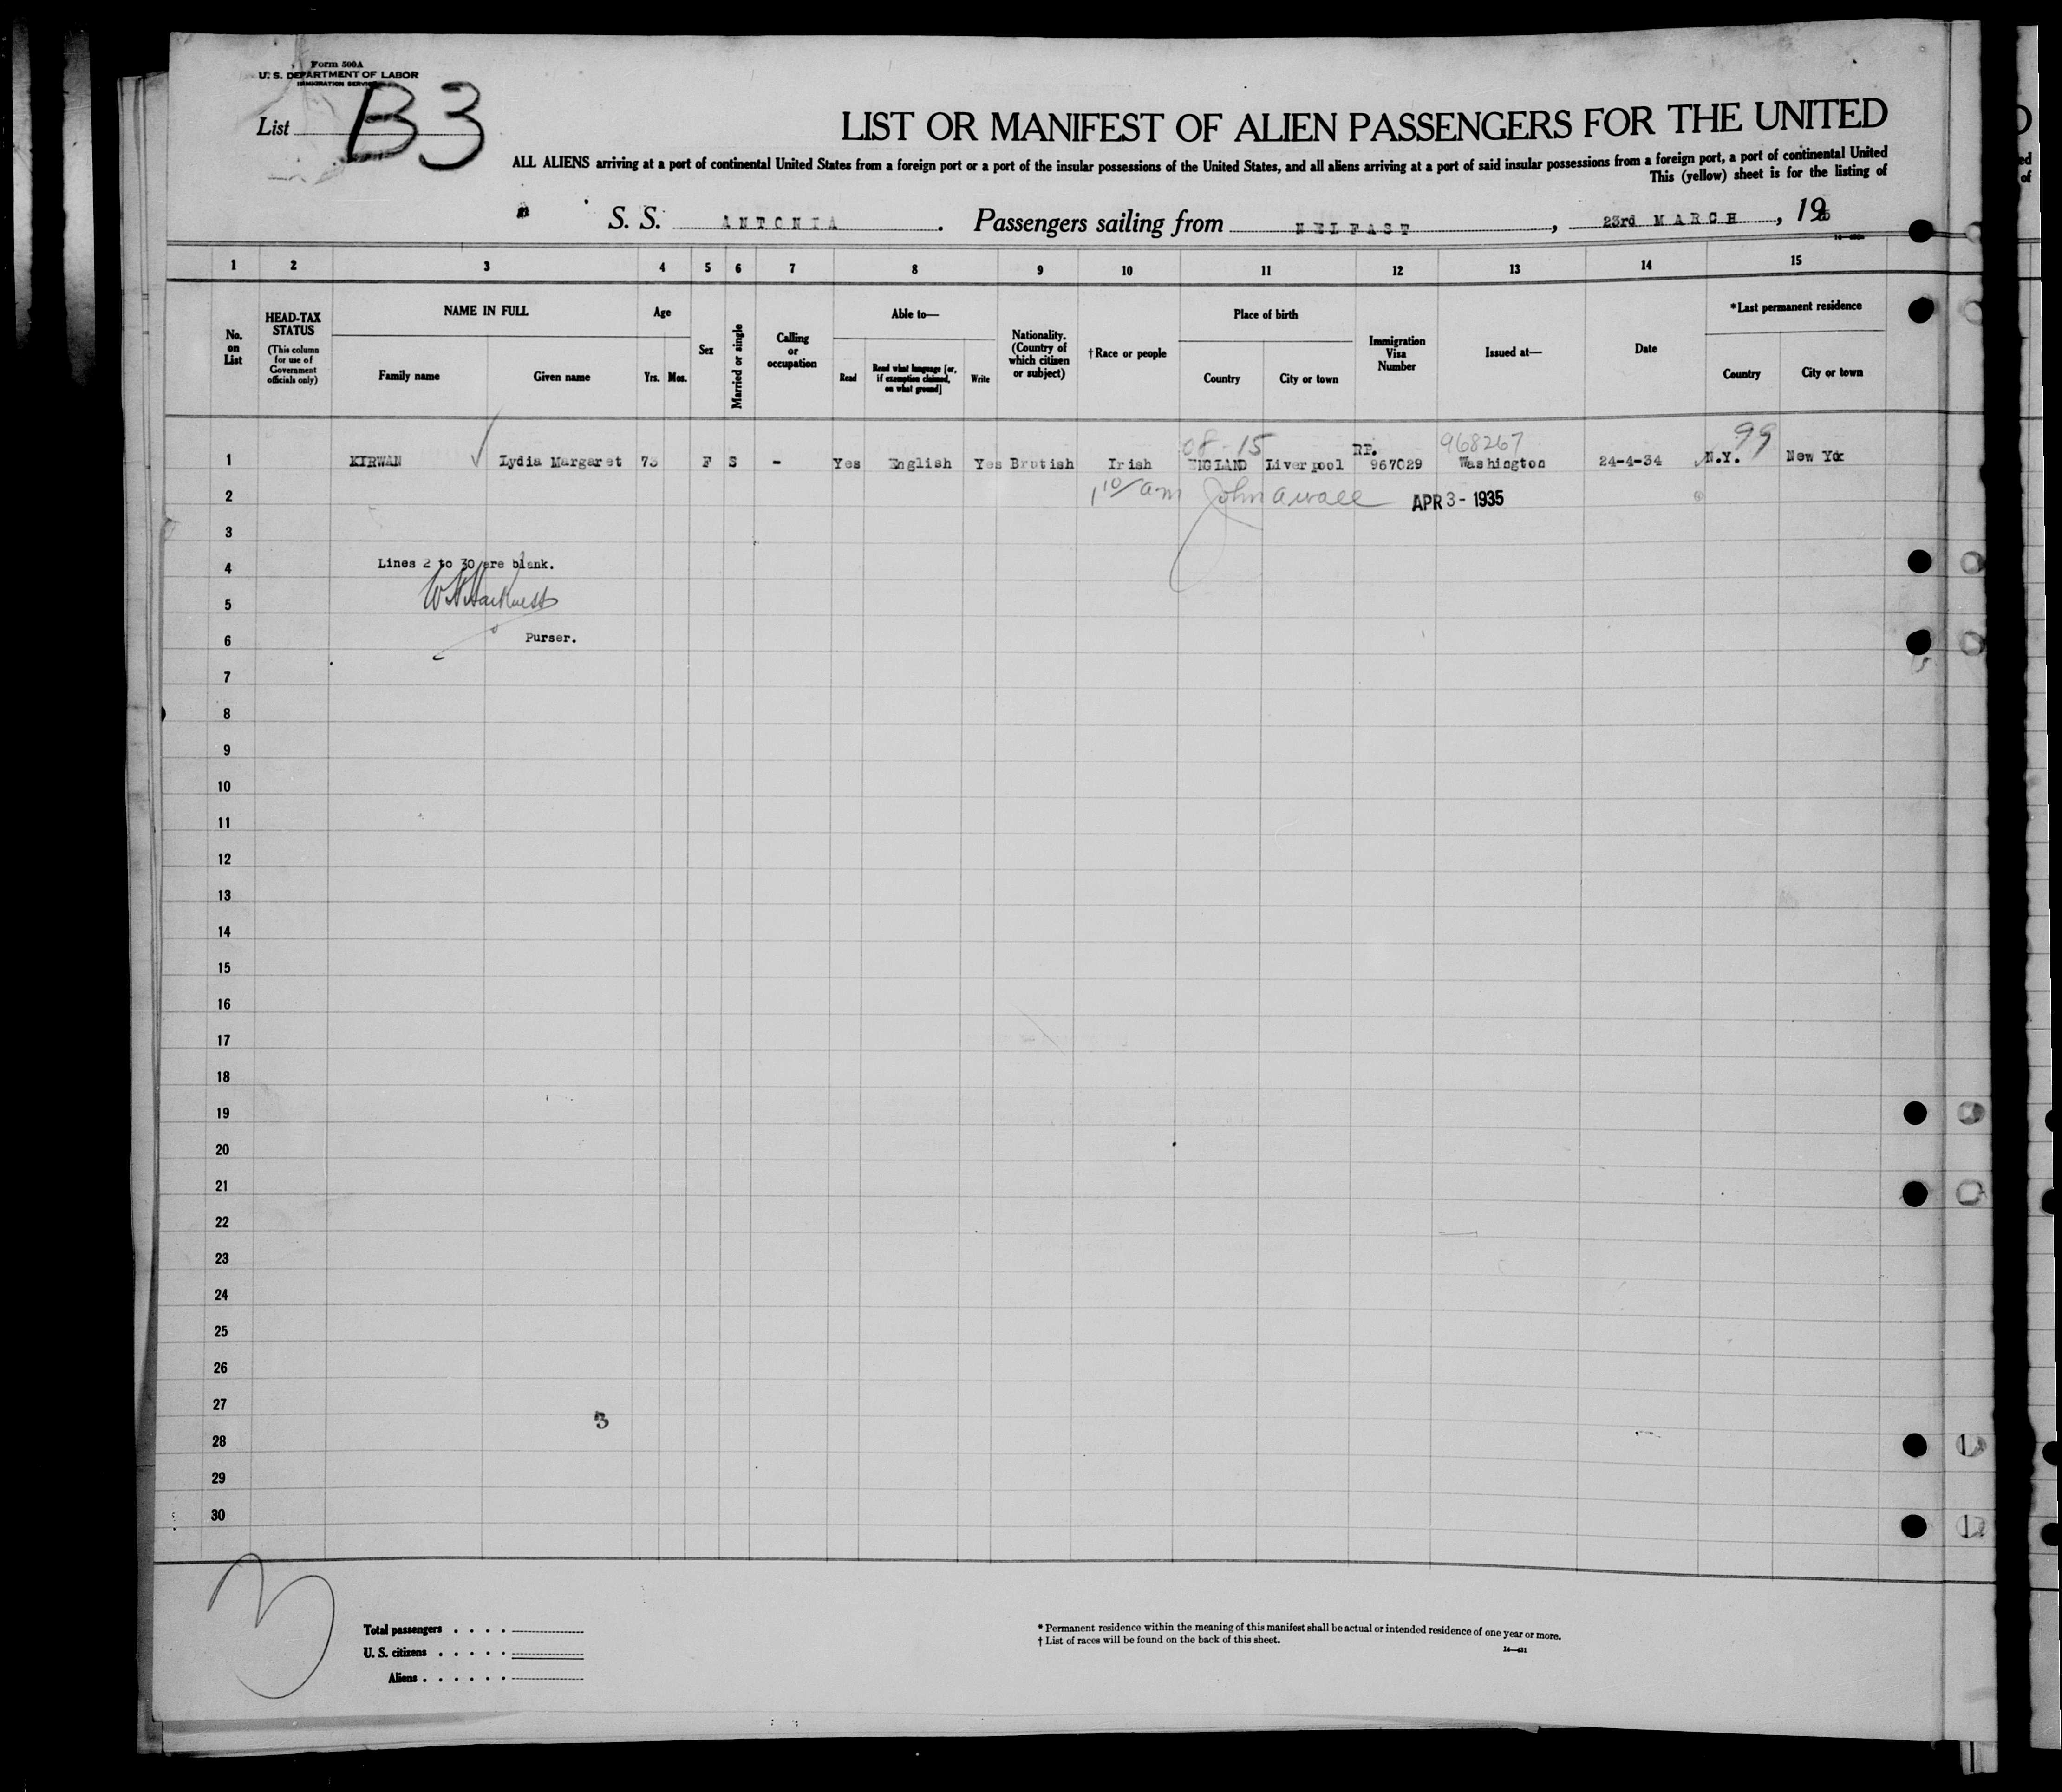 Form 500A
U. S. DEPARTMENT OF LABOR
IMMIGRATION SERVICE
List B3
LIST OR MANIFEST OF ALIEN PASSENGERS FOR THE UNITED
ALL ALIENS arriving at a port of continental United States from a foreign port or a port of the insular possessions of the United States, and all aliens arriving at a port of said insular possessions from a foreign port, a port of continental United
This (yellow) sheet is for the listing of
S. S. ANTONIA. Passengers sailing from BELFAST, 23rd MARCH, 19
1 2 3 4 5 6 7 8 9 10 11 12 13 14 15
No. on List
HEAD-TAX STATUS
(This column for use of Government officials only)
NAME IN FULL
Family name Given name
Age
Yrs. Mos.
Sex
Married or single
Calling or occupation
Able to—
Read Read what language [or, if exemption claimed, on what ground] Write
Nationality. (Country of which citizen or subject)
†Race or people
Place of birth
Country City or town
Immigration Visa Number
Issued at—
Date
*Last permanent residence
Country City or town
08-15 RP. 968267 99
1 KIRWAN Lydia Margaret F S - Yes English Yes Irish ENGLAND Liverpool 967029 Washington 24-4-34 N.Y. New Yok
2 1 10/ am John APR 3 - 1935
3
4 Lines 2 to 30 are blank.
5
6 Purser.
7
8
9
10
11
12
13
14
15
16
17
18
19
20
21
22
23
24
25
26
27 3
28
29
30
3
Total passengers
U. S. citizens
Aliens
* Permanent residence within the meaning of this manifest shall be actual or intended residence of one year or more.
† List of races will be found on the back of this sheet.